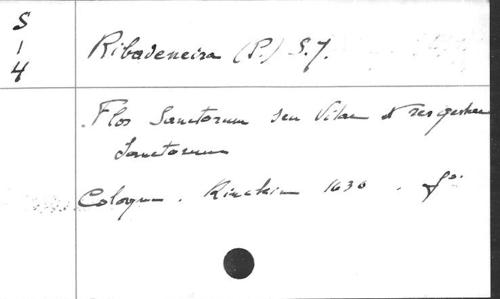 S
1
4
Ribadeneira (P.) S.J.
Flos Sanctorum seu Vitae et res gestae
Sanctorum
Cologne. Kinckin 1630. fo.